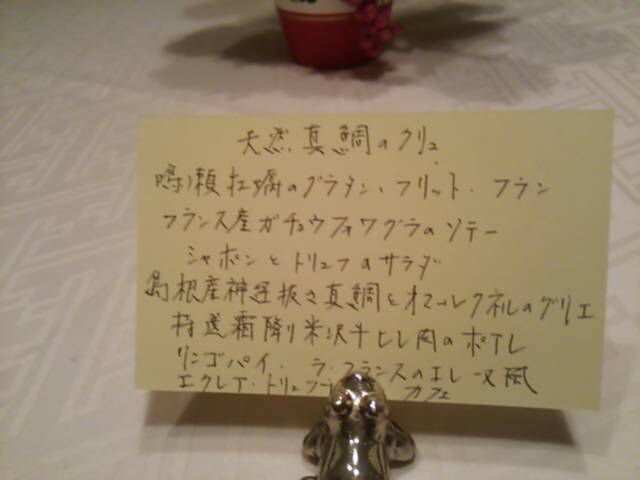 天然真鯛のクリュ
鳴瀬牡蠣のグラタン、フリット、フラン
フランス産ガチョウフォワグラのソテー
ジャボンとトリュフのサラダ
島根産神経抜き真鯛とオマールクネルのグリエ
特選霜降り米沢牛ヒレ肉のポワレ
リンゴパイ、ラ・フランスのエレーヌ風
エクレア・トリュフ カフェ